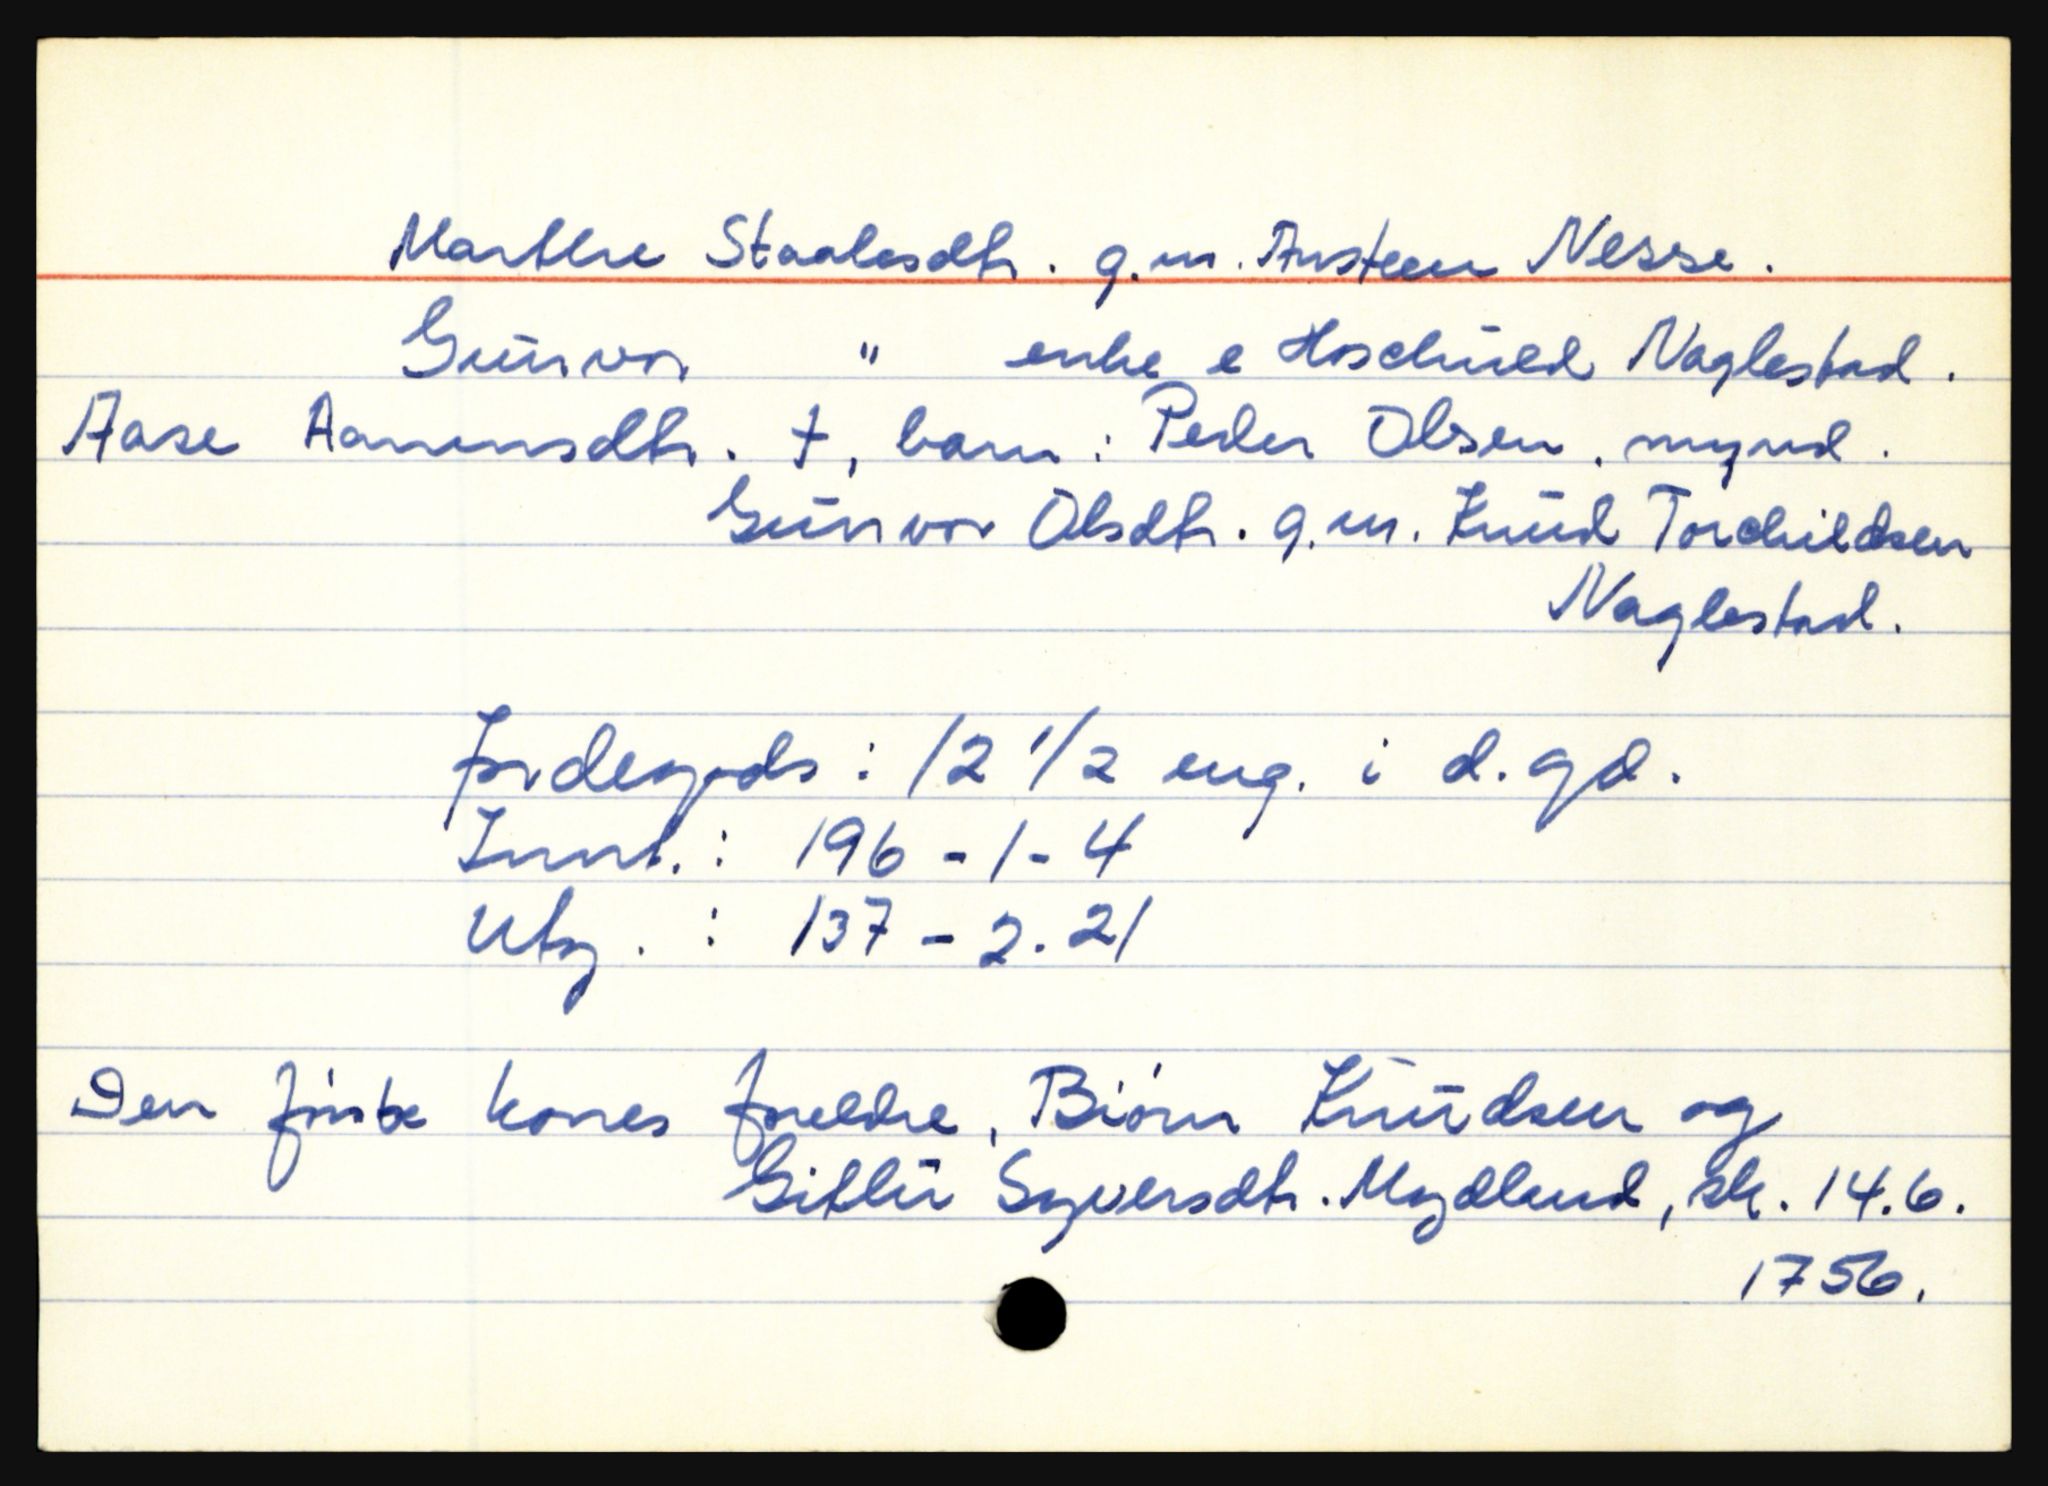 Marthe Staalesdtr. g.m. Austeen Nesse.
Gunvor " enke e Hoschuld Naglestad.
Aase Aanensdtr. †, barn: Peder Olsen, mynd.
Gunvor Olsdtr. g.m. Knud Torchildsen
Naglestad.
Jordegods: 12 1/2 eng. i d. gd.
Innt.: 196 - 1 - 4
Utg.: 137 - 2. 21
Den første kones foreldre, Biørn Knudsen og
Gitlu Syversdtr. Mydland, sk. 14.6.
1756.